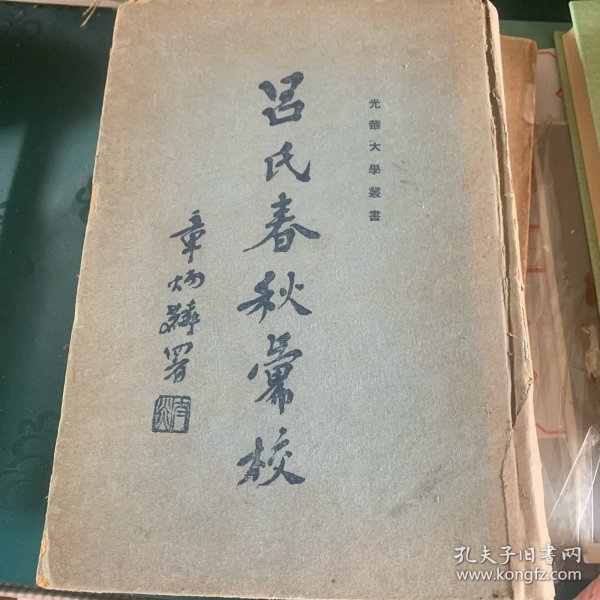 光華大學叢書
呂氏春秋彙校
章炳麟署
孔夫子旧书网
www.kongfz.com